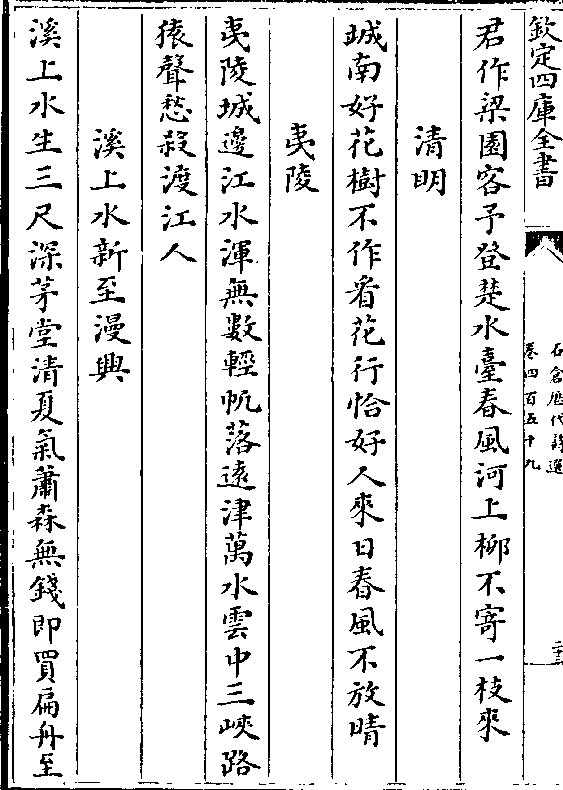 欽定四庫全書
石倉歷代詩選
卷四百五十九
君作梁園客予登楚水臺春風河上柳不寄一枝來
清明
城南好花樹不作看花行恰好人來日春風不放晴
夷陵
夷陵城邊江水渾無數輕帆落遠津萬水雲中三峽路
猿聲愁殺渡江人
溪上水新至漫興
溪上水生三尺深茅堂清夏氣蕭森無錢即買扁舟至